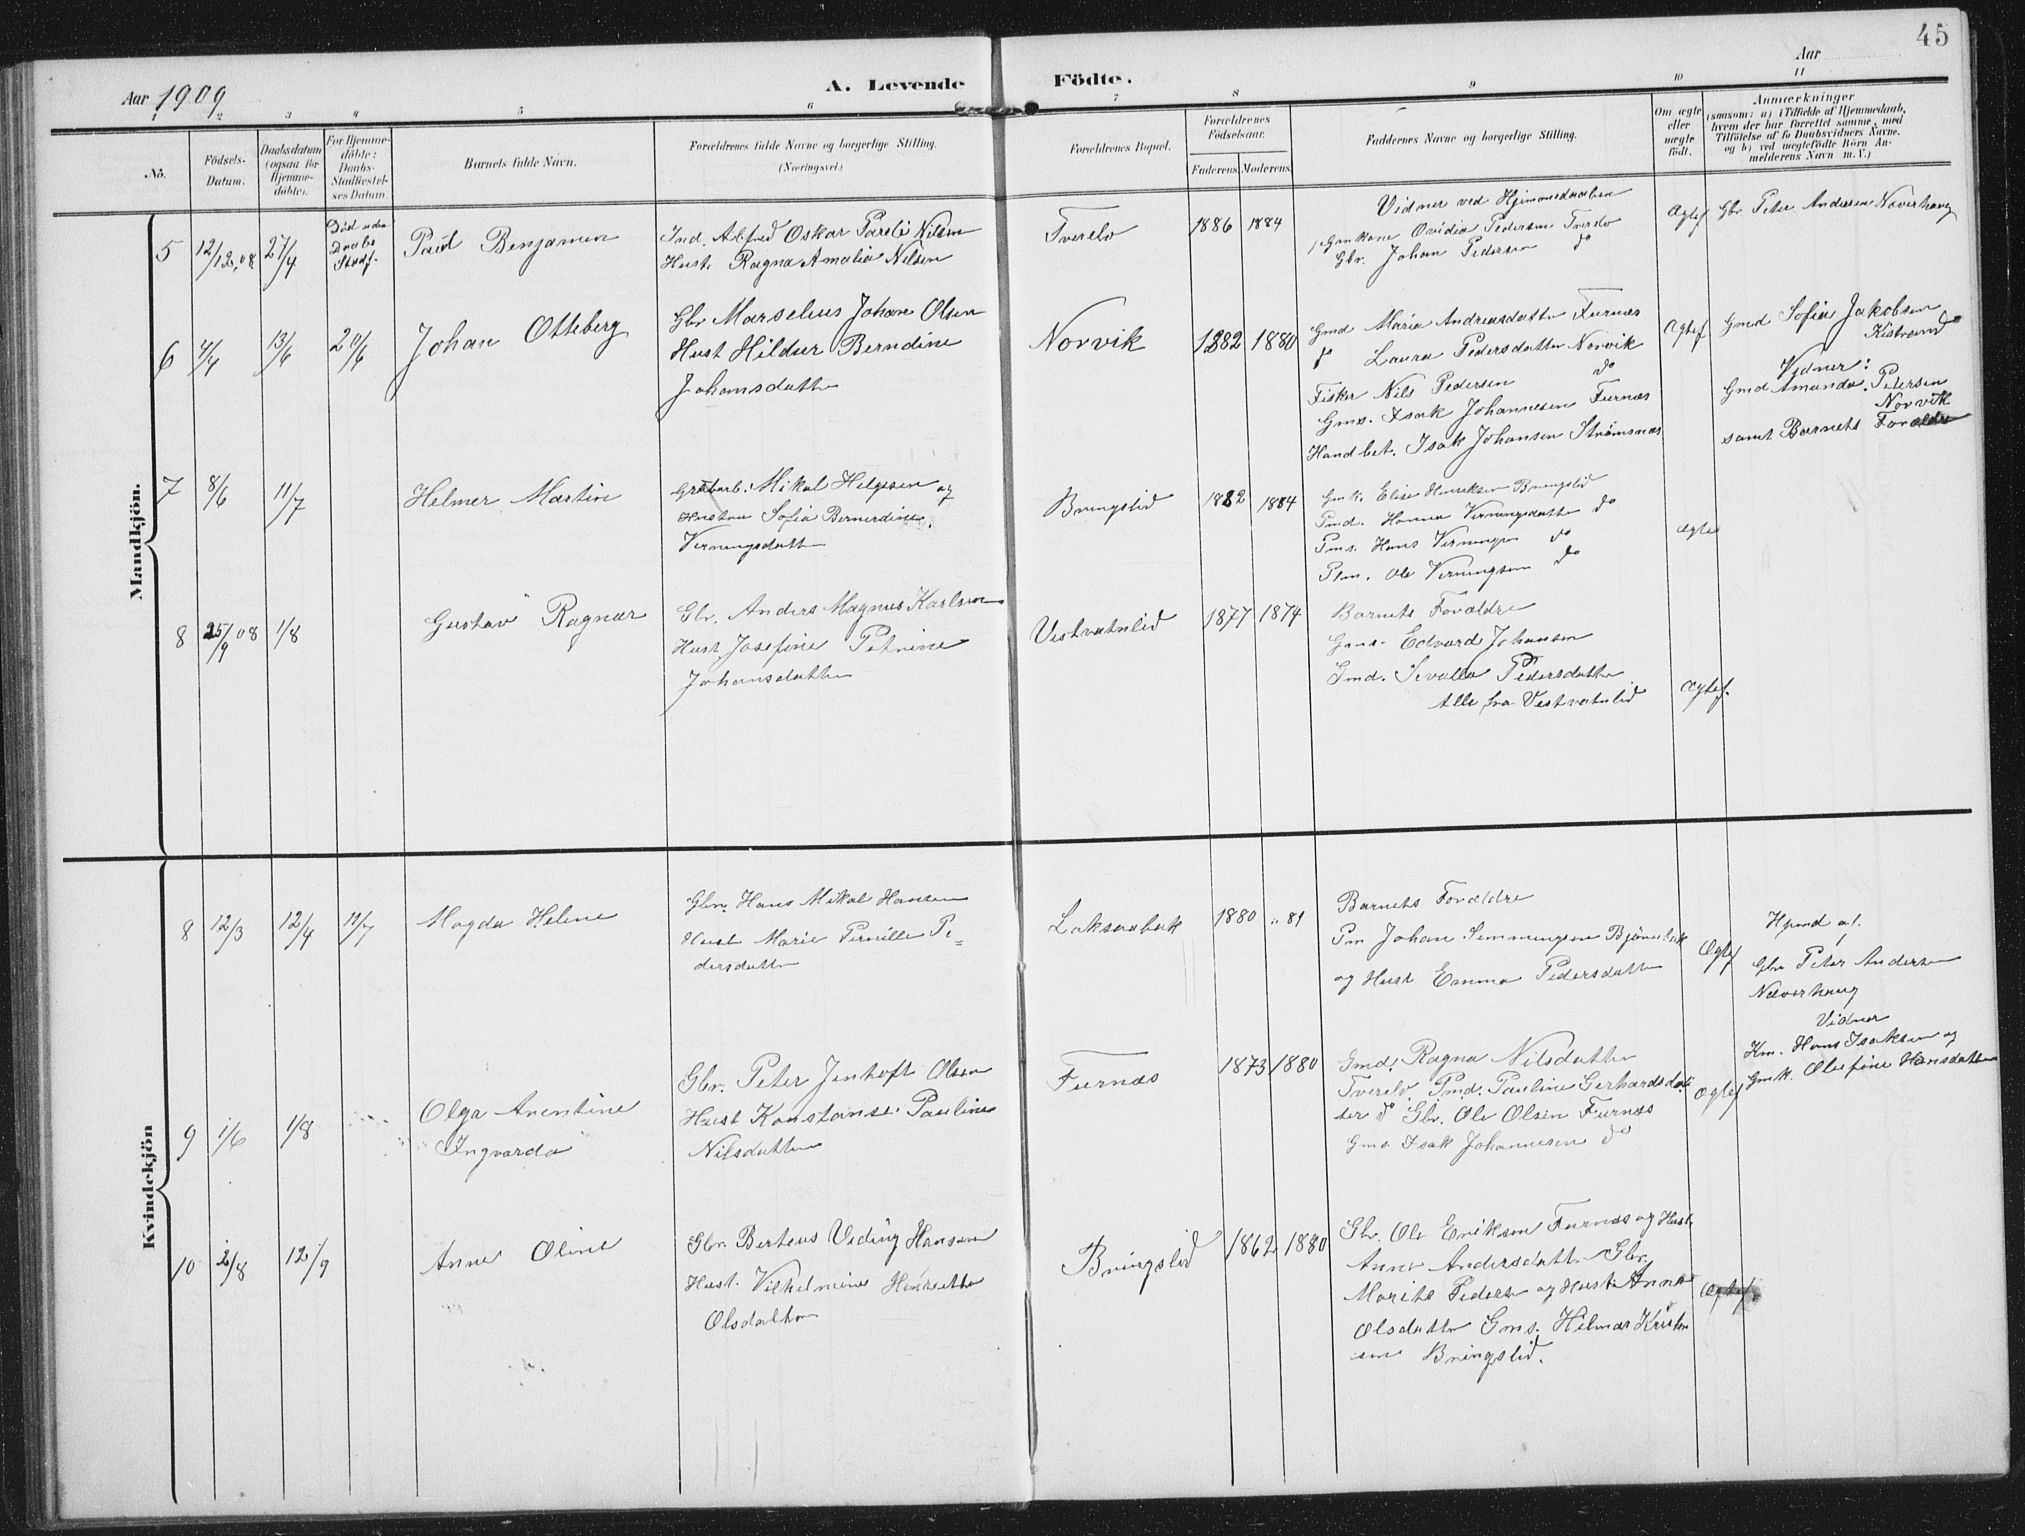 45
Aar 1909
A. Levende Födte.
Aar
1 2 3 4 5 6 7 8 9 10 11
No.
Födsels-Datum.
Daabsdatum (ogsaa for Hjemme-döbte).
For Hjemme-döbte: Daabs-Stadfæstel-ses Datum
Barnets fulde Navn.
Forældrenes fulde Navne og borgerlige Stilling.
(Næringsvei.)
Forældrenes Bopæl.
Forældrenes Födselsaar.
Faderens Moderens
Faddernes Navne og borgerlige Stilling.
Om ægte eller uægte födt.
Anmærkninger
(saasom: a) i Tilfælde af Hjemmedaab,
hvem der har forrettet samme, med
Tilföielse af to Daabsvidners Navne.
og b) ved uægtefödte Börn An-
melderens Navn m. V.)
Mandkjön.
5 12/12.08 27/4
Död uden
Daabs
Stadf.
Paul Benjamin
Ind. Alfred Oskar Pareli Nilsen
Hust. Ragna Amalia Nilsen
Tverelv
1886 1884
Vidner ved Hjemmedaaben
Gmkone Ovidia Pedersen Tverelv
Gbr. Johan Pedersen do
Ægtef
Gbr Peter Andersen Næverhaug
6 4/4 13/6 20/6
Johan Otteberg
Gbr Marselius Johan Olsen
Hust Hildur Berndine
Johansdatter
Norvik
1882 1880
Gmd Maria Andreasdatter Furnæs
do Laura Pedersdatter Norvik
Fisker Nils Pedersen do
Gms. Isak Johannesen Furnæs
Handbet. Isak Johansen Strømsnæs
Ægtef
Gmd Sofia Jakobsen
Kistrand
Vidner:
Gmd Amanda Petersen
Norvik
samt Barnets Forældre
7 8/6 11/7
Helmer Martin
Grubarb. Mikal Helgesen og
Hustru Sofia Bernerdine
Verningsdatter
Bringslid
1882 1884
Gmk. Elise Henriksen Bringslid
Pmd. Hanna Verningsdatter do
Pms. Hans Verningsen do
Plm. Ole Verningsen do
ægte
8 25/9 08 1/8
Gustav Ragnar
Gbr. Anders Magnus Karlsen
Hust Josefine Petrine
Johansdatter
Vestvatnlid
1877 1874
Barnets Forældre
Gms. Edvard Johansen
Gmd. Sevalla Pedersdatter
Alle fra Vestvatnlid
Ægtef.
Kvindekjön
8 12/3 12/4 11/7
Magda Helene
Gbr. Hans Mikal Hansen
Hust Marie Pernille Pe=
dersdatter
Laksaabak
1880 " 81
Barnets Forældre
Pm Johan Simmingsen Bjørnbak
og Hust Emma Pedersdatter
Ægtef
Hjmd af.
Gbr Peter Andersen
Næverhaug
Vidner
Km. Hans Isaksen og
Gmk. Olefine Hansdatter
9 1/6 1/8
Olga Arentine
Ingvarda
Gbr. Peter Jenhoft Olsen
Hust Konstanse Pauline
Nilsdatter
Furnæs
1873 1880
Gmd. Ragna Nilsdatter
Tverelv Pmd. Pauline Gerhardsdat
ter do Gbr. Ole Olsen Furnæs
Gms Isak Johannesen do
Ægtef
10 2/8 12/9
Anne Oline
Gbr. Berteus Veding Hansen
Hust. Vilhelmine Henrette
Olsdatter
Bringslid
1862 1880
Gbr. Ole Eriksen Furnæs og Hust.
Anne Andersdatter Gbr.
Marite Pedersen og Hust. Anna
Olsdatter Gms. Hilmar Kristen
sen Bringslid.
Ægtef.